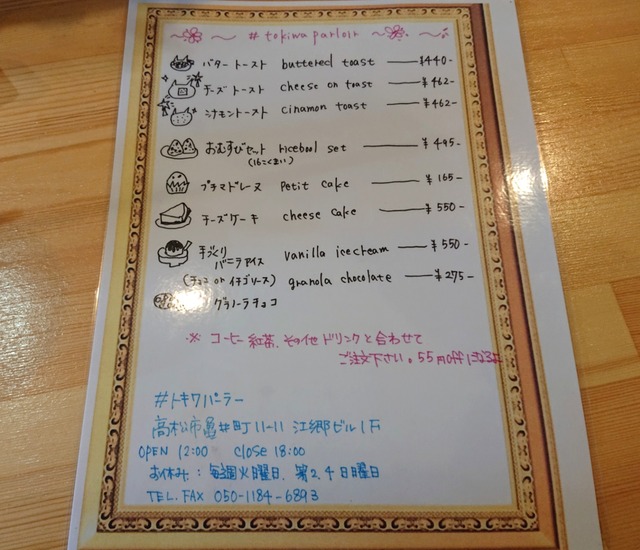 # tokiwa parloir
バタートースト buttered toast ¥440-
チーズトースト cheese on toast ¥462-
シナモントースト cinamon toast ¥462-
おむすびセット ricebool set ¥495-
プチマドレーヌ petit cake ¥165-
チーズケーキ cheese cake ¥550-
手づくり
バニラアイス vanilla icecream ¥550-
(チョコ or イチゴソース) granola chocolate ¥275-
グラノーラチョコ
※ コーヒー 紅茶、その他 ドリンクと合わせて
ご注文下さい。55円off になるよ
#トキワパーラー
高松市亀井町11-11 江郷ビル1F
OPEN 12:00 Close 18:00
お休み: 毎週火曜日、第2,4日曜日
TEL. FAX 050-1184-6893